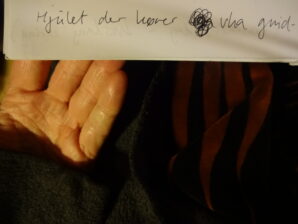 Hjulet der kører vha gnid-